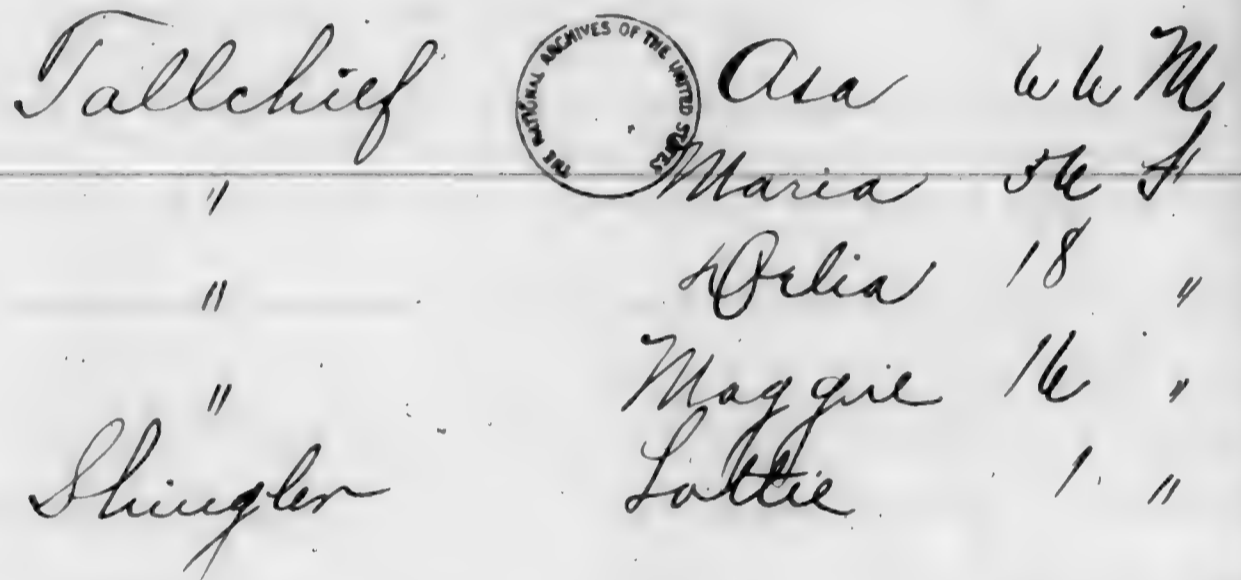 Tallchief Asa 66 M
THE NATIONAL ARCHIVES OF THE UNITED STATES
" Maria 56 F
" Delia 18 "
" Maggie 16 "
Shingler Lottie 1 "